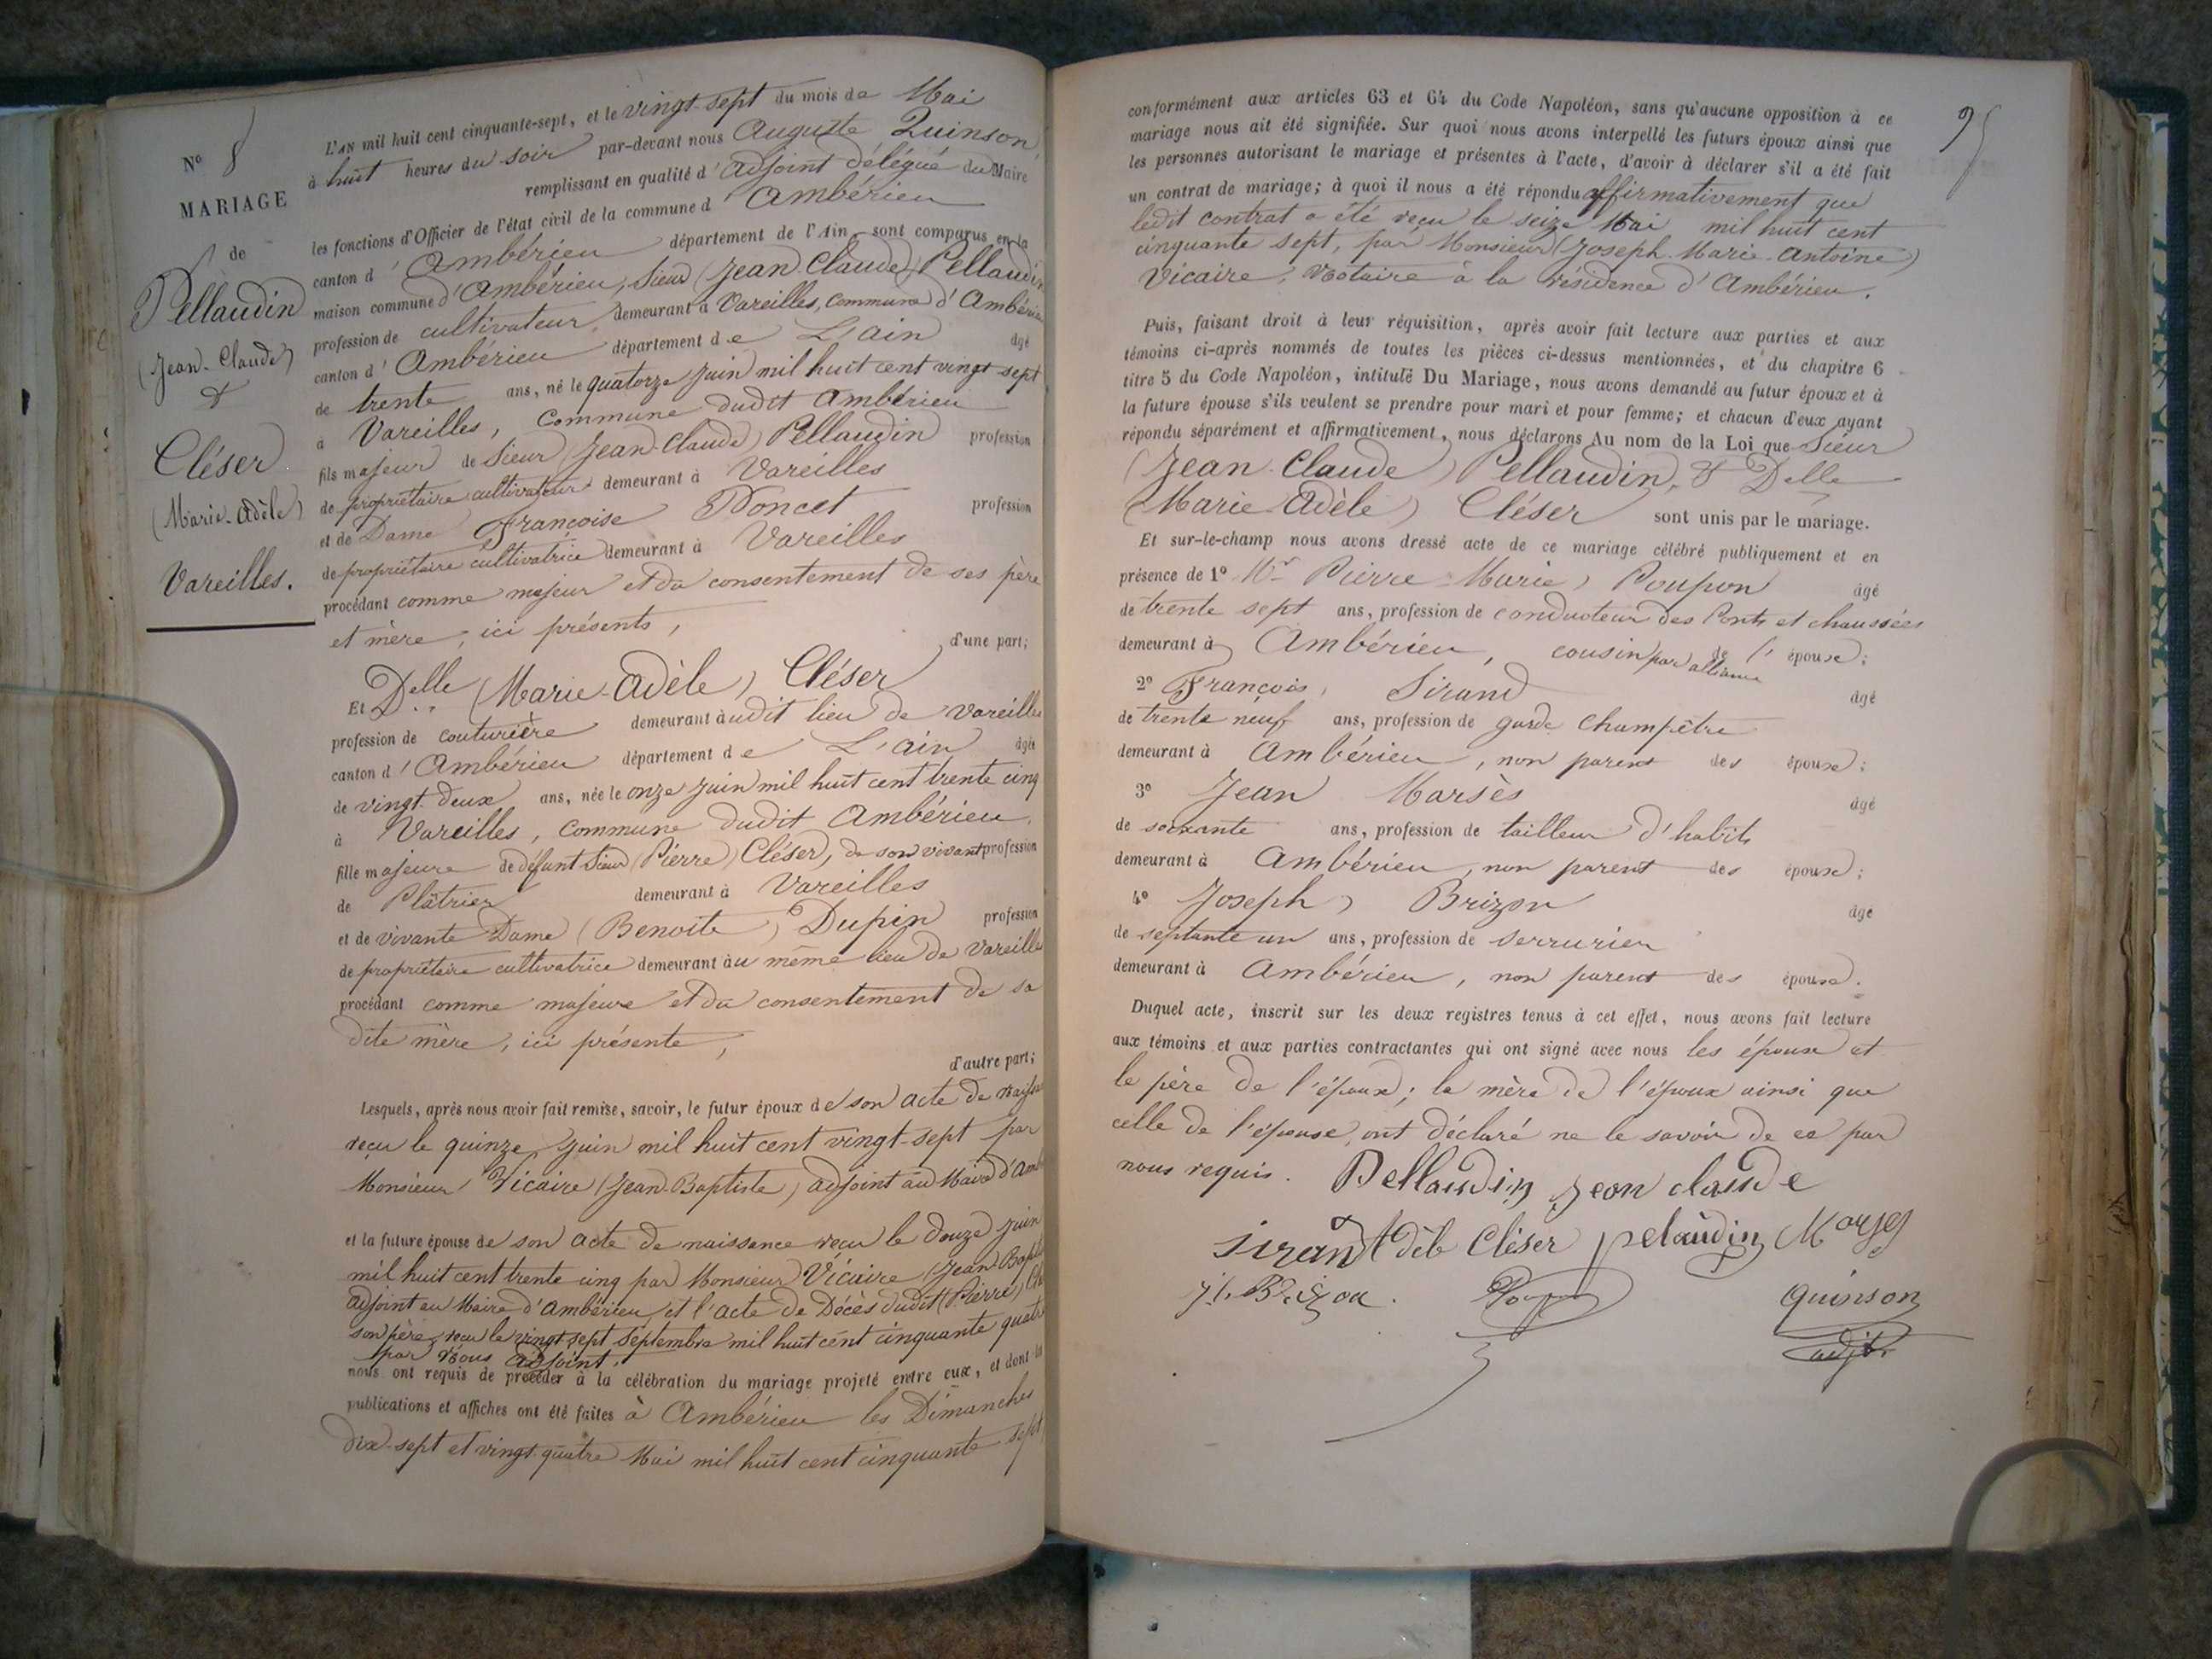 N° 8
MARIAGE
de
Pellaudin
(Jean-Claude)
&
Cléser
(Marie-Adèle)
Vareilles.
L'AN mil huit cent cinquante-sept, et le vingt-sept du mois de Mai
à huit heures du soir par-devant nous Auguste Quinson,
remplissant en qualité d'adjoint délégué du Maire
les fonctions d'Officier de l'état civil de la commune d'Ambérieu
canton d'Ambérieu département de l'Ain, sont comparus en la
maison commune d'Ambérieu, Sieur (Jean-Claude) Pellaudin
profession de cultivateur demeurant à Vareilles, commune d'Ambérieu
canton d'Ambérieu département de L'ain âgé
de trente ans, né le quatorze juin mil huit cent vingt sept
à Vareilles, Commune dudit Ambérieu
fils majeur de Sieur (Jean-Claude) Pellaudin profession
de propriétaire cultivateur demeurant à Vareilles
et de Dame Françoise Doncet profession
de propriétaire cultivatrice demeurant à Vareilles
procédant comme majeur et du consentement de ses père
et mère, ici présents, d'une part;
Et Delle (Marie-Adèle) Cléser
profession de couturière demeurant audit lieu de Vareilles
canton d'Ambérieu département de L'ain âgée
de vingt-deux ans, née le onze juin mil huit cent trente cinq
à Vareilles, commune dudit Ambérieu,
fille majeure de défunt Sieur (Pierre) Cléser, de son vivant profession
de Plâtrier demeurant à Vareilles
et de vivante Dame (Benoite) Dupin profession
de propriétaire cultivatrice demeurant au même lieu de Vareilles
procédant comme majeure et du consentement de sa
dite mère, ici présente,
d'autre part;
Lesquels, après nous avoir fait remise, savoir, le futur époux de son acte de
reçu le quinze juin mil huit cent vingt-sept par
Monsieur Vicaire (Jean-Baptiste) adjoint au Maire
et la future épouse de son acte de naissance reçu le douze juin
mil huit cent trente cinq par Monsieur Vicaire
adjoint au Maire d'Ambérieu, et l'acte de Décès dudit (Pierre)
son père, reçu le vingt sept septembre mil huit cent cinquante quatre
par Nous adjoint,
nous ont requis de procéder à la célébration du mariage projeté entre eux, et dont
publications et affiches ont été faites à Ambérieu les Dimanches
dix-sept et vingt-quatre Mai mil huit cent cinquante sept
95
conformément aux articles 63 et 64 du Code Napoléon, sans qu'aucune opposition à ce
mariage nous ait été signifiée. Sur quoi nous avons interpellé les futurs époux ainsi que
les personnes autorisant le mariage et présentes à l'acte, d'avoir à déclarer s'il a été fait
un contrat de mariage; à quoi il nous a été répondu affirmativement que
ledit contrat a été reçu le seize Mai mil huit cent
cinquante sept, par Monsieur (Joseph-Marie-Antoine)
Vicaire, Notaire à la résidence d'Ambérieu.
Puis, faisant droit à leur réquisition, après avoir fait lecture aux parties et aux
témoins ci-après nommés de toutes les pièces ci-dessus mentionnées, et du chapitre 6
titre 5 du Code Napoléon, intitulé Du Mariage, nous avons demandé au futur époux et à
la future épouse s'ils veulent se prendre pour mari et pour femme; et chacun d'eux ayant
répondu séparément et affirmativement, nous déclarons Au nom de la Loi que Sieur
(Jean-Claude) Pellaudin, & Delle
(Marie-Adèle) Cléser sont unis par le mariage.
Et sur-le-champ nous avons dressé acte de ce mariage célébré publiquement et en
présence de 1° Mr Pierre-Marie, Poupon âgé
de trente sept ans, profession de conducteur des Ponts et chaussées
demeurant à Ambérieu, cousin par alliance de l'épouse;
2° François, Sirand âgé
de trente neuf ans, profession de garde champêtre
demeurant à Ambérieu, non parent des époux;
3° Jean Marsès âgé
de soixante ans, profession de tailleur d'habits
demeurant à Ambérieu, non parent des époux;
4° Joseph, Brizon âgé
de septante un ans, profession de serrurier
demeurant à Ambérieu, non parent des époux.
Duquel acte, inscrit sur les deux registres tenus à cet effet, nous avons fait lecture
aux témoins et aux parties contractantes qui ont signé avec nous les époux et
le père de l'époux; la mère de l'époux ainsi que
celle de l'épouse, ont déclaré ne le savoir de ce par
nous requis. Pellaudin Jean claude
Sirand Adèle Cléser pelaudin Marses
J. Brizon. Quinson
adjt.